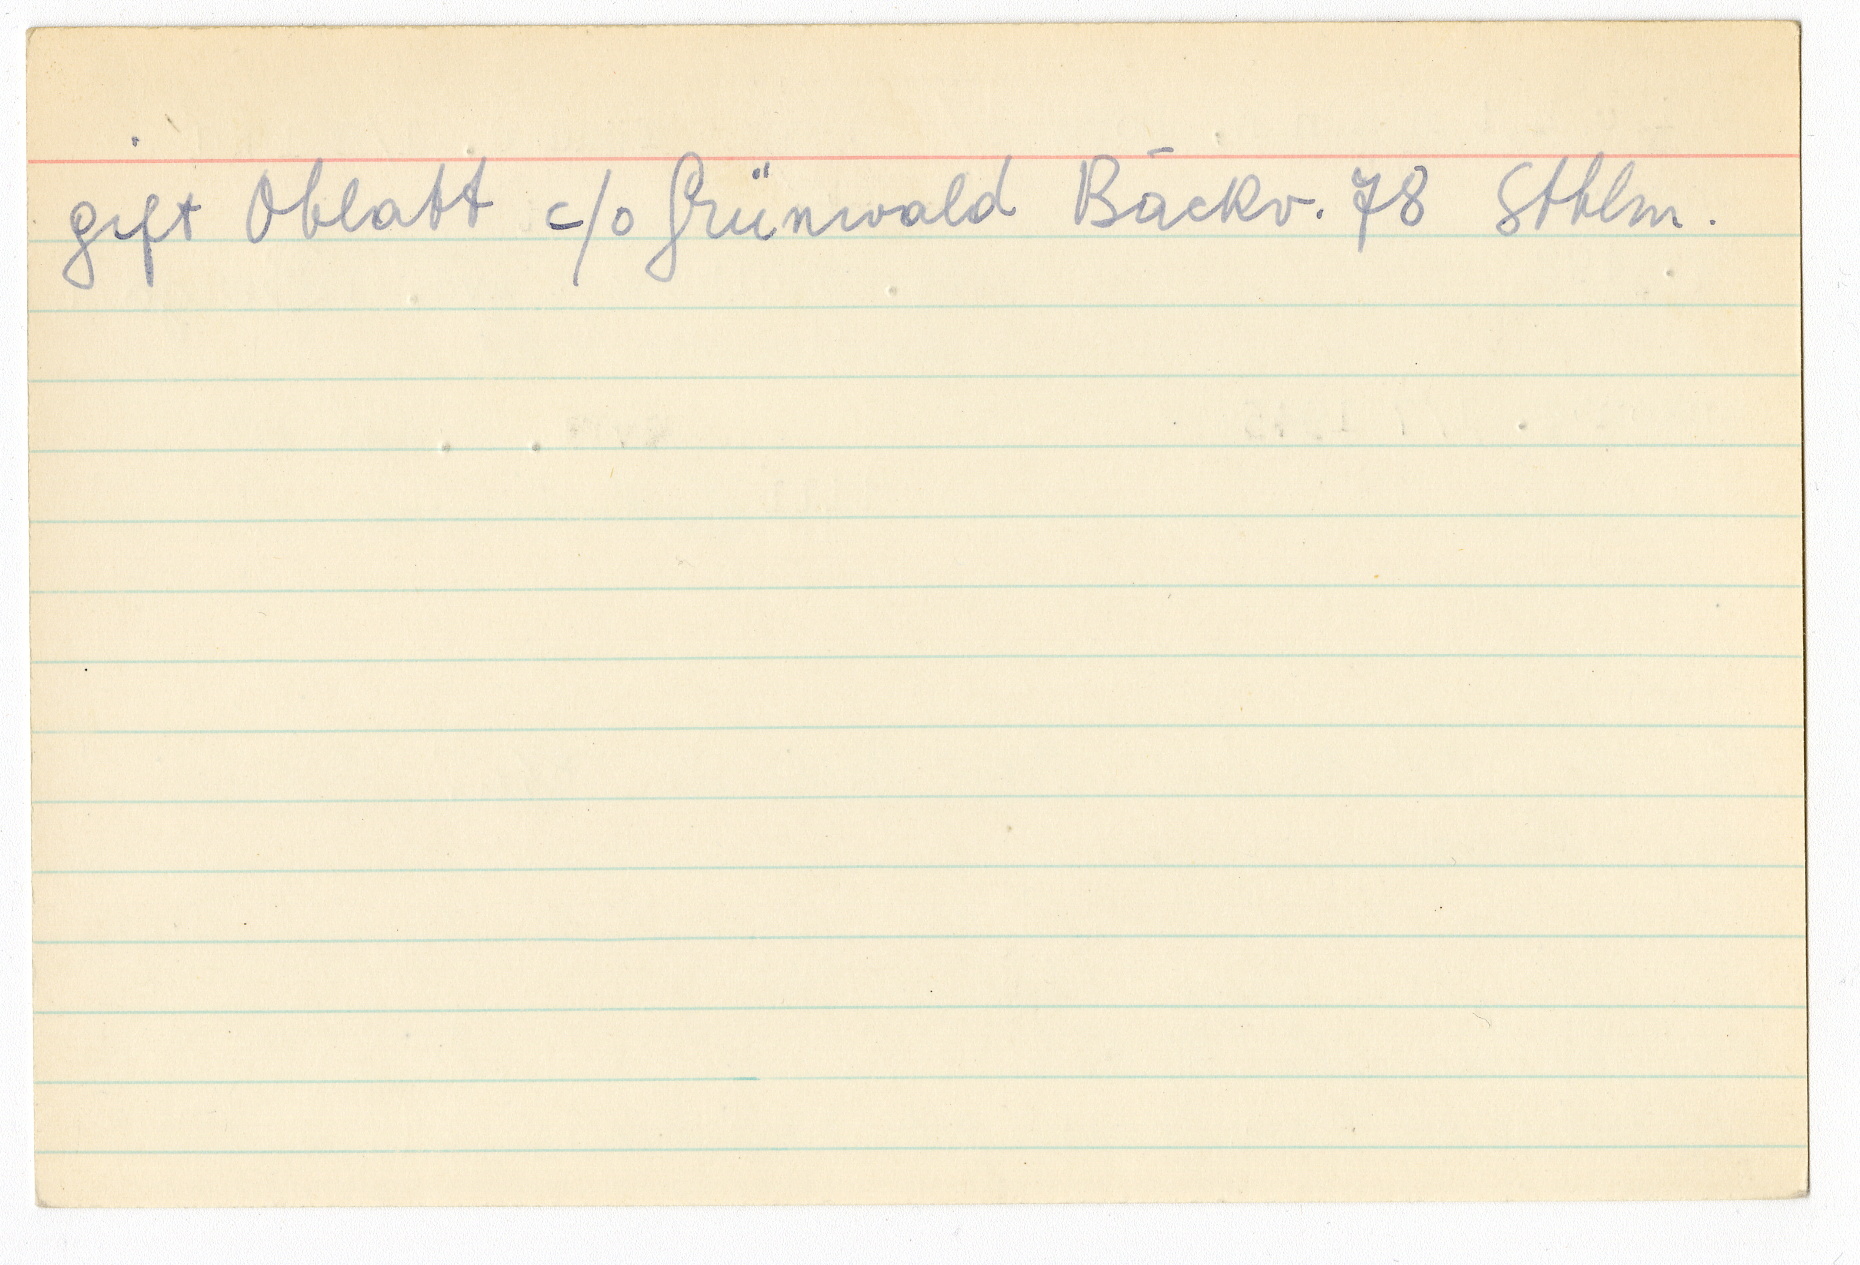 gift Oblatt c/o Grünwald Bäckv. 78 Sthlm.